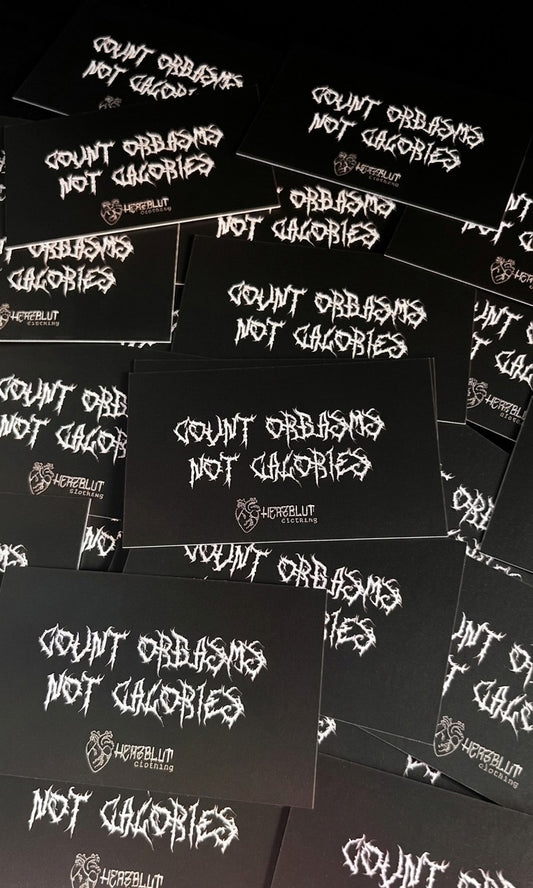 COUNT ORGASMS
NOT CALO
COUNT ORGASMS
NOT CALORIES
HERZBLUT
clothing
COUNT ORGASMS
NOT CALORIES
HERZBLUT
clothing
COUNT ORGASMS
NOT CALORIES
COUNT ORGASMS
CALORIES
HERZBLUT
clothing
COUNT ORGASMS
NOT CALORIES
HERZBLUT
clothing
COUNT ORG
NOT CALO
HERZBLUT
clothing
COUNT ORGASMS
NOT CALORIES
HERZBLUT
clothing
COUNT ORGASMS
COUNT ORGASMS
NOT CALORIES
HERZBLUT
clothing
HERZBLUT
clothing
NOT CALORIES
HERZBLUT
COUNT